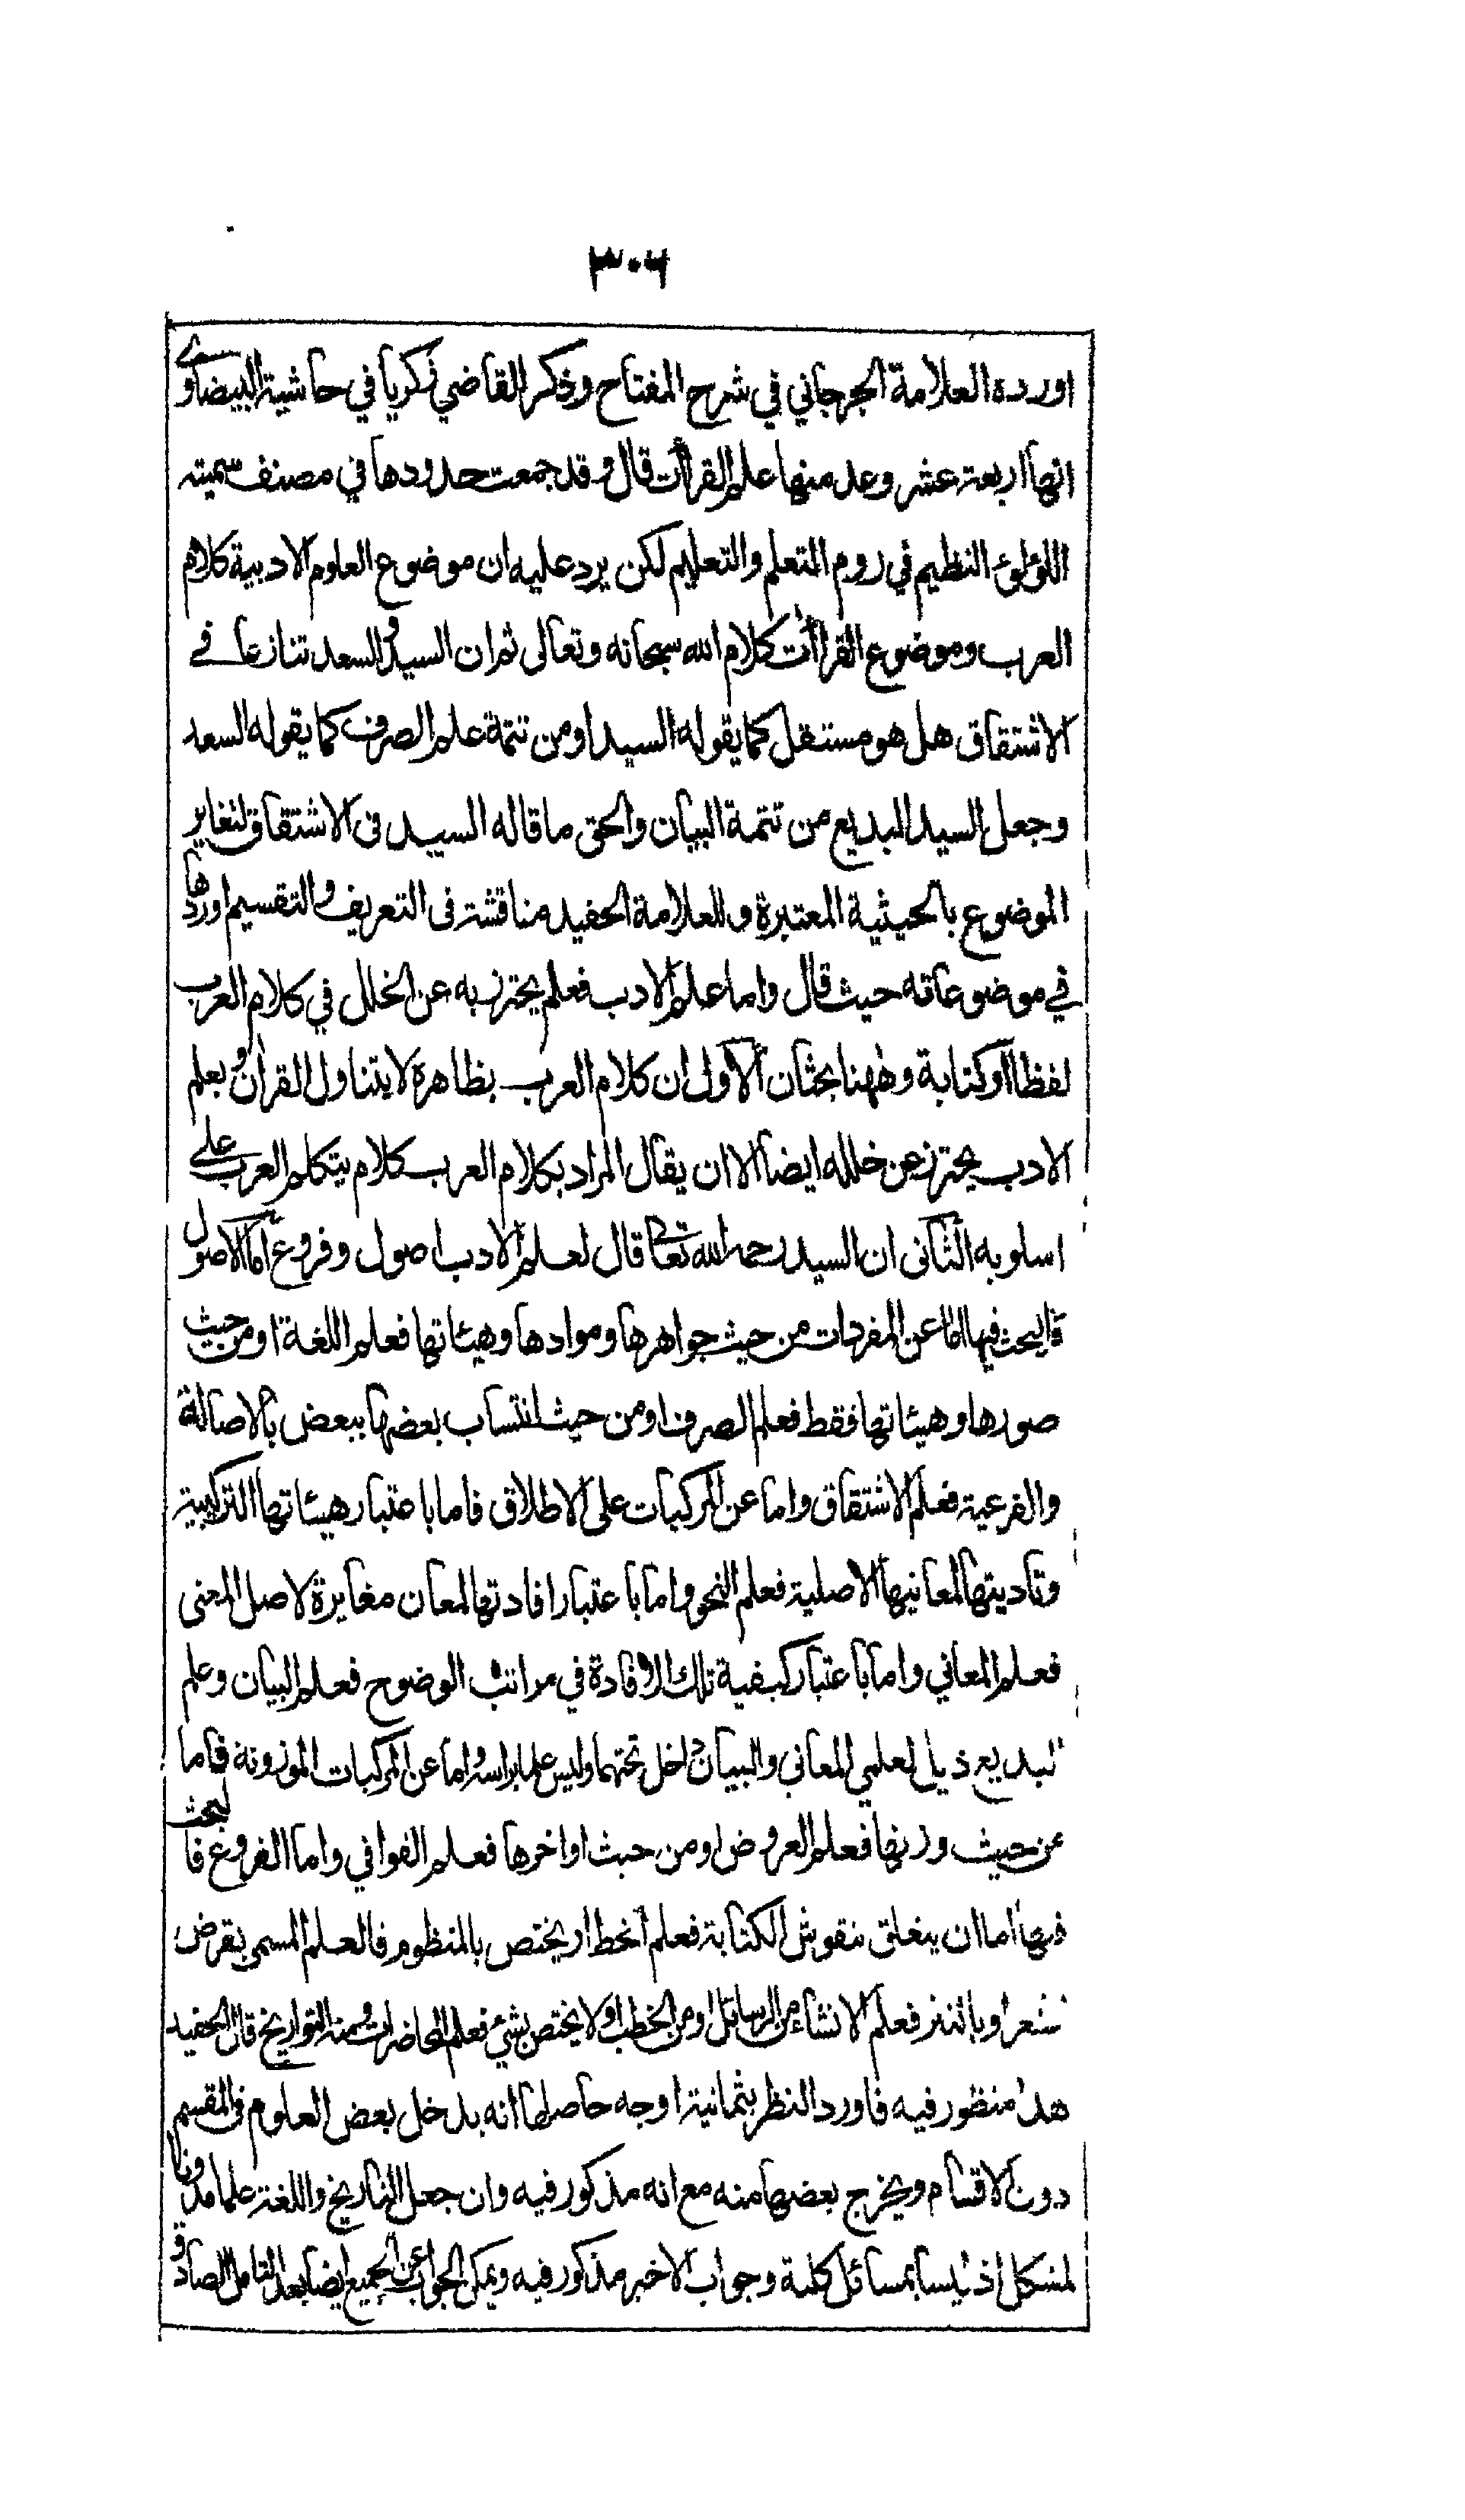 ٣٠٦
اورده العلامة الجرجاني في شرح المفتاح وذكر القاضي زكريا في حاشية البيضاوي
انها اربعة عشر وعد منها علم القراآت قال وقد جمعت حدودها في مصنف سميته
اللؤلؤ النظيم في روم التعلم والتعليم لكن يرد عليه ان موضوع العلوم الادبية كلام
العرب وموضوع القراآت كلام الله سبحانه وتعالى ثم ان السيد والسعد تنازعا في
الاشتقاق هل هو مستقل كما يقوله السيد او من تتمة علم الصرف كما يقوله السعد
وجعل السيد البديع من تتمة البيان والحق ما قاله السيد في الاشتقاق لتغاير
الموضوع بالحيثية المعتبرة وللعلامة الحفيد مناقشة في التعريف والتقسيم اوردها
في موضوعاته حيث قال واما علم الادب فعلم يحترز به عن الخلل في كلام العرب
لفظا او كتابة وههنا بحثان الاول ان كلام العرب بظاهره لا يتناول القرآن وبعلم
الادب يحترز عن خلله ايضا الا ان يقال المراد بكلام العرب كلام يتكلم العرب على
اسلوبه الثاني ان السيد رحمه الله تعالى قال لعلم الادب اصول وفروع اما الاصول
فالبحث فيها اما عن المفردات من حيث جواهرها وموادها وهيئاتها فعلم اللغة او من حيث
صورها وهيئاتها فقط فعلم الصرف او من حيث انتساب بعضها ببعض بالاصالة
والفرعية فعلم الاشتقاق واما عن المركبات على الاطلاق فاما باعتبار هيئاتها التركيبية
وتاديتها لمعانيها الاصلية فعلم النحو واما باعتبار افادتها لمعان مغايرة لاصل المعنى
فعلم المعاني واما باعتبار كيفية تلك الافادة في مراتب الوضوح فعلم البيان وعلم
البديع ذيل لعلمي المعاني والبيان داخل تحتهما وليس علما براسه واما عن المركبات الموزونة فاما
من حيث وزنها فعلم العروض او من حيث اواخرها فعلم القوافي واما الفروع فالبحث
فيها اما ان يتعلق بنقوش الكتابة فعلم الخط او يختص بالمنظوم فالعلم المسمى بقرض
شعر او بالنثر فعلم الانشاء من الرسائل او من الخطب او لا يختص بشيء فعلم المحاضرات ومنه التواريخ قال الحفيد
هذا منظور فيه فاورد النظر بثمانية اوجه حاصلها انه يدخل بعض العلوم في المقسم
دون الاقسام ويخرج بعضها منه مع انه مذكور فيه وان جعل التاريخ واللغة علما مدونا
لمشكل اذ ليسا بمسائل كلية وجواب الاخير مذكور فيه ويمكن الجواب عن الجميع ايضا بعد التامل الصادق